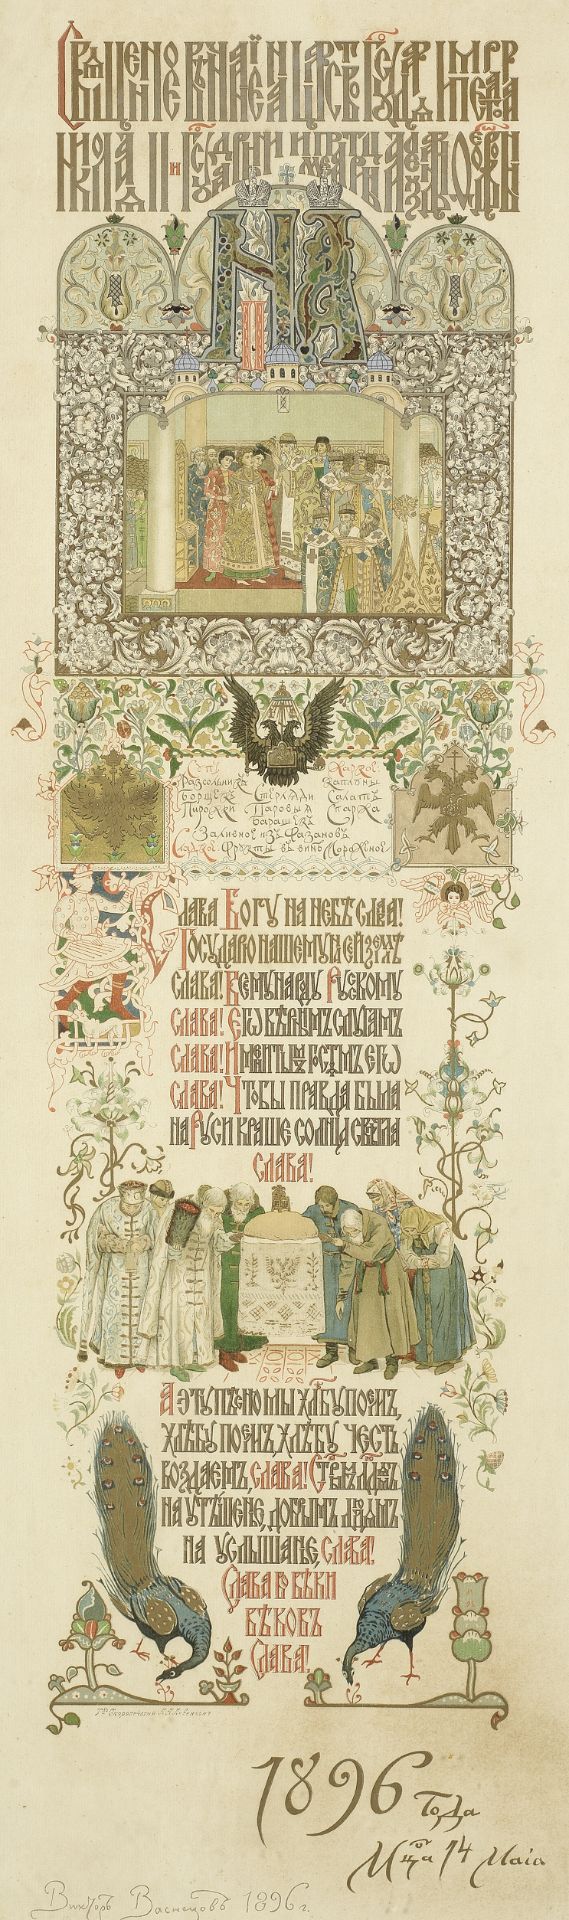 Священное Вѣнчанiе на Царство Государя Императора
Николая II и Государыни Императрицы Александры Ѳеодоровны
Н А
II
Супы Жаркое
Разсольникъ Каплуны
Борщекъ Стерляди Салатъ
Пирожки Паровыя Спаржа
Барашекъ
Заливное изъ Фазановъ
Сладкое Фрукты въ винѣ Мороженое
Слава Богу на небѣ слава!
Государю нашему на сей землѣ
слава! Всему народу Рускому
слава! Его вѣрнымъ слугамъ
слава! Именитымъ гостямъ его
слава! Чтобы правда была
на Руси краше солнца свѣтла
слава!
А эту пѣсню мы хлѣбу поемъ,
хлѣбу поемъ, хлѣбу честь
воздаемъ, слава! Старымъ людямъ
на утѣшенье, добрымъ людямъ
на услышанье, слава!
Слава во вѣки
вѣковъ
слава!
1896 года
Мца 14 Маiа
Викторъ Васнецовъ 1896 г.